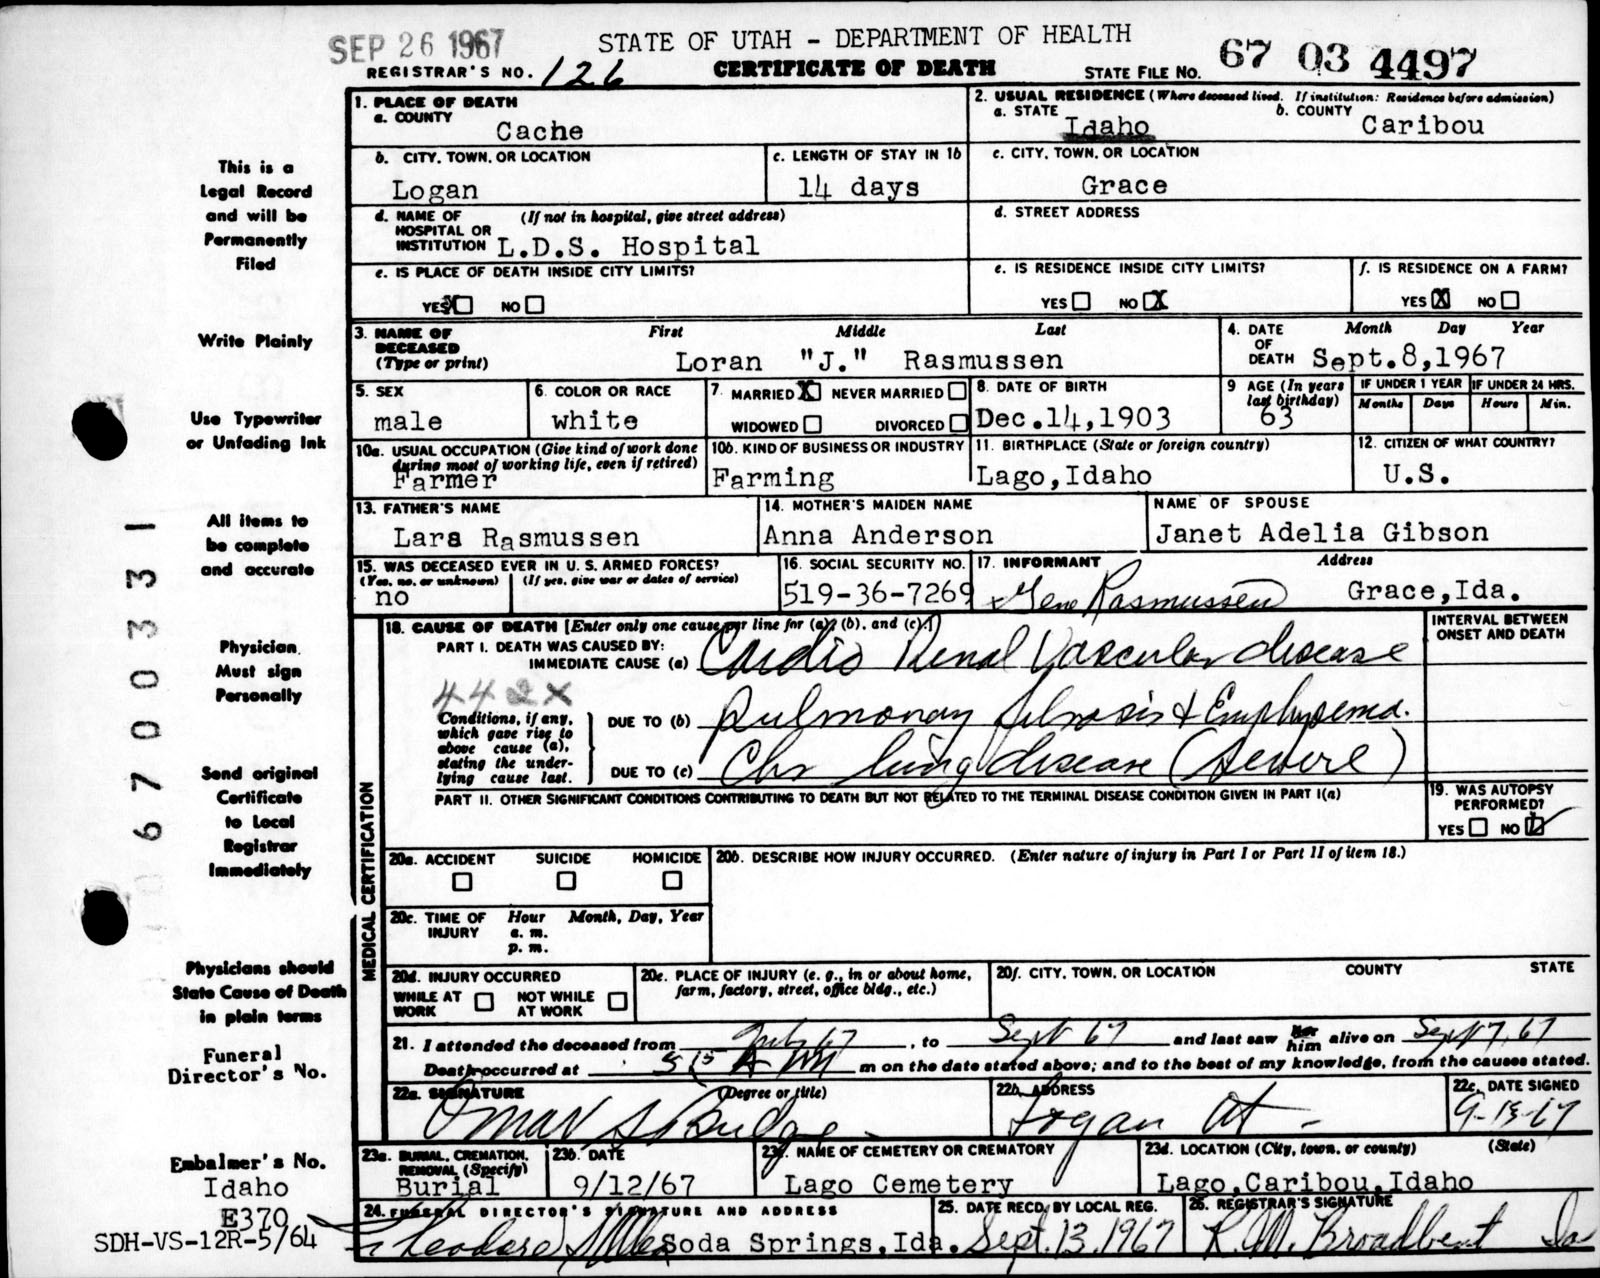 SEP 26 1967
STATE OF UTAH - DEPARTMENT OF HEALTH
67 03 4497
REGISTRAR'S NO. 126
CERTIFICATE OF DEATH
STATE FILE NO.
1. PLACE OF DEATH
a. COUNTY
Cache
2. USUAL RESIDENCE (Where deceased lived. If institution: Residence before admission)
a. STATE Idaho
b. COUNTY Caribou
b. CITY, TOWN, OR LOCATION
Logan
c. LENGTH OF STAY IN 1b
14 days
c. CITY, TOWN, OR LOCATION
Grace
d. NAME OF HOSPITAL OR INSTITUTION (If not in hospital, give street address)
L.D.S. Hospital
d. STREET ADDRESS
e. IS PLACE OF DEATH INSIDE CITY LIMITS?
YES X NO
e. IS RESIDENCE INSIDE CITY LIMITS?
YES NO X
f. IS RESIDENCE ON A FARM?
YES X NO
3. NAME OF DECEASED (Type or print)
First Middle Last
Loran "J." Rasmussen
4. DATE OF DEATH Month Day Year
Sept.8,1967
5. SEX
male
6. COLOR OR RACE
white
7. MARRIED X NEVER MARRIED
WIDOWED DIVORCED
8. DATE OF BIRTH
Dec.14,1903
9 AGE (In years last birthday)
63
IF UNDER 1 YEAR
Months Days
IF UNDER 24 HRS.
Hours Min.
10a. USUAL OCCUPATION (Give kind of work done during most of working life, even if retired)
Farmer
10b. KIND OF BUSINESS OR INDUSTRY
Farming
11. BIRTHPLACE (State or foreign country)
Lago,Idaho
12. CITIZEN OF WHAT COUNTRY?
U.S.
13. FATHER'S NAME
Lars Rasmussen
14. MOTHER'S MAIDEN NAME
Anna Anderson
NAME OF SPOUSE
Janet Adelia Gibson
15. WAS DECEASED EVER IN U. S. ARMED FORCES?
(Yes, no, or unknown) (If yes, give war or dates of service)
no
16. SOCIAL SECURITY NO.
519-36-7269
17. INFORMANT Address
x Gene Rasmussen Grace,Ida.
MEDICAL CERTIFICATION
18. CAUSE OF DEATH [Enter only one cause per line for (a), (b), and (c).]
INTERVAL BETWEEN ONSET AND DEATH
PART I. DEATH WAS CAUSED BY:
IMMEDIATE CAUSE (a) Cardio Renal Vascular disease
442X
Conditions, if any, which gave rise to above cause (a), stating the underlying cause last.
DUE TO (b) pulmonary fibrosis & Emphysema.
DUE TO (c) Chr lung disease (severe)
PART II. OTHER SIGNIFICANT CONDITIONS CONTRIBUTING TO DEATH BUT NOT RELATED TO THE TERMINAL DISEASE CONDITION GIVEN IN PART I(a)
19. WAS AUTOPSY PERFORMED?
YES NO
20a. ACCIDENT SUICIDE HOMICIDE
20b. DESCRIBE HOW INJURY OCCURRED. (Enter nature of injury in Part I or Part II of item 18.)
20c. TIME OF INJURY Hour Month, Day, Year
a. m.
p. m.
20d. INJURY OCCURRED
WHILE AT WORK NOT WHILE AT WORK
20e. PLACE OF INJURY (e. g., in or about home, farm, factory, street, office bldg., etc.)
20f. CITY, TOWN, OR LOCATION COUNTY STATE
21. I attended the deceased from 67, to Sept 67 and last saw him alive on Sept 7, 67
Death occurred at 5 15 A m on the date stated above; and to the best of my knowledge, from the causes stated.
22a. SIGNATURE (Degree or title)
Omar S Budge
22b. ADDRESS
Logan Ut -
22c. DATE SIGNED
9-13-67
23a. BURIAL, CREMATION, REMOVAL (Specify)
Burial
23b. DATE
9/12/67
23c. NAME OF CEMETERY OR CREMATORY
Lago Cemetery
23d. LOCATION (City, town, or county) (State)
Lago,Caribou,Idaho
24. FUNERAL DIRECTOR'S SIGNATURE AND ADDRESS
Theodore Soda Springs,Ida.
25. DATE RECD. BY LOCAL REG.
Sept. 13, 1967
26. REGISTRAR'S SIGNATURE
R.M. Broadbent
This is a
Legal Record
and will be
Permanently
Filed
Write Plainly
Use Typewriter
or Unfading Ink
All items to
be complete
and accurate
Physician
Must sign
Personally
Send original
Certificate
to Local
Registrar
Immediately
Physicians should
State Cause of Death
in plain terms
Funeral
Director's No.
Embalmer's No.
Idaho
E370
SDH-VS-12R-5/64
06700331